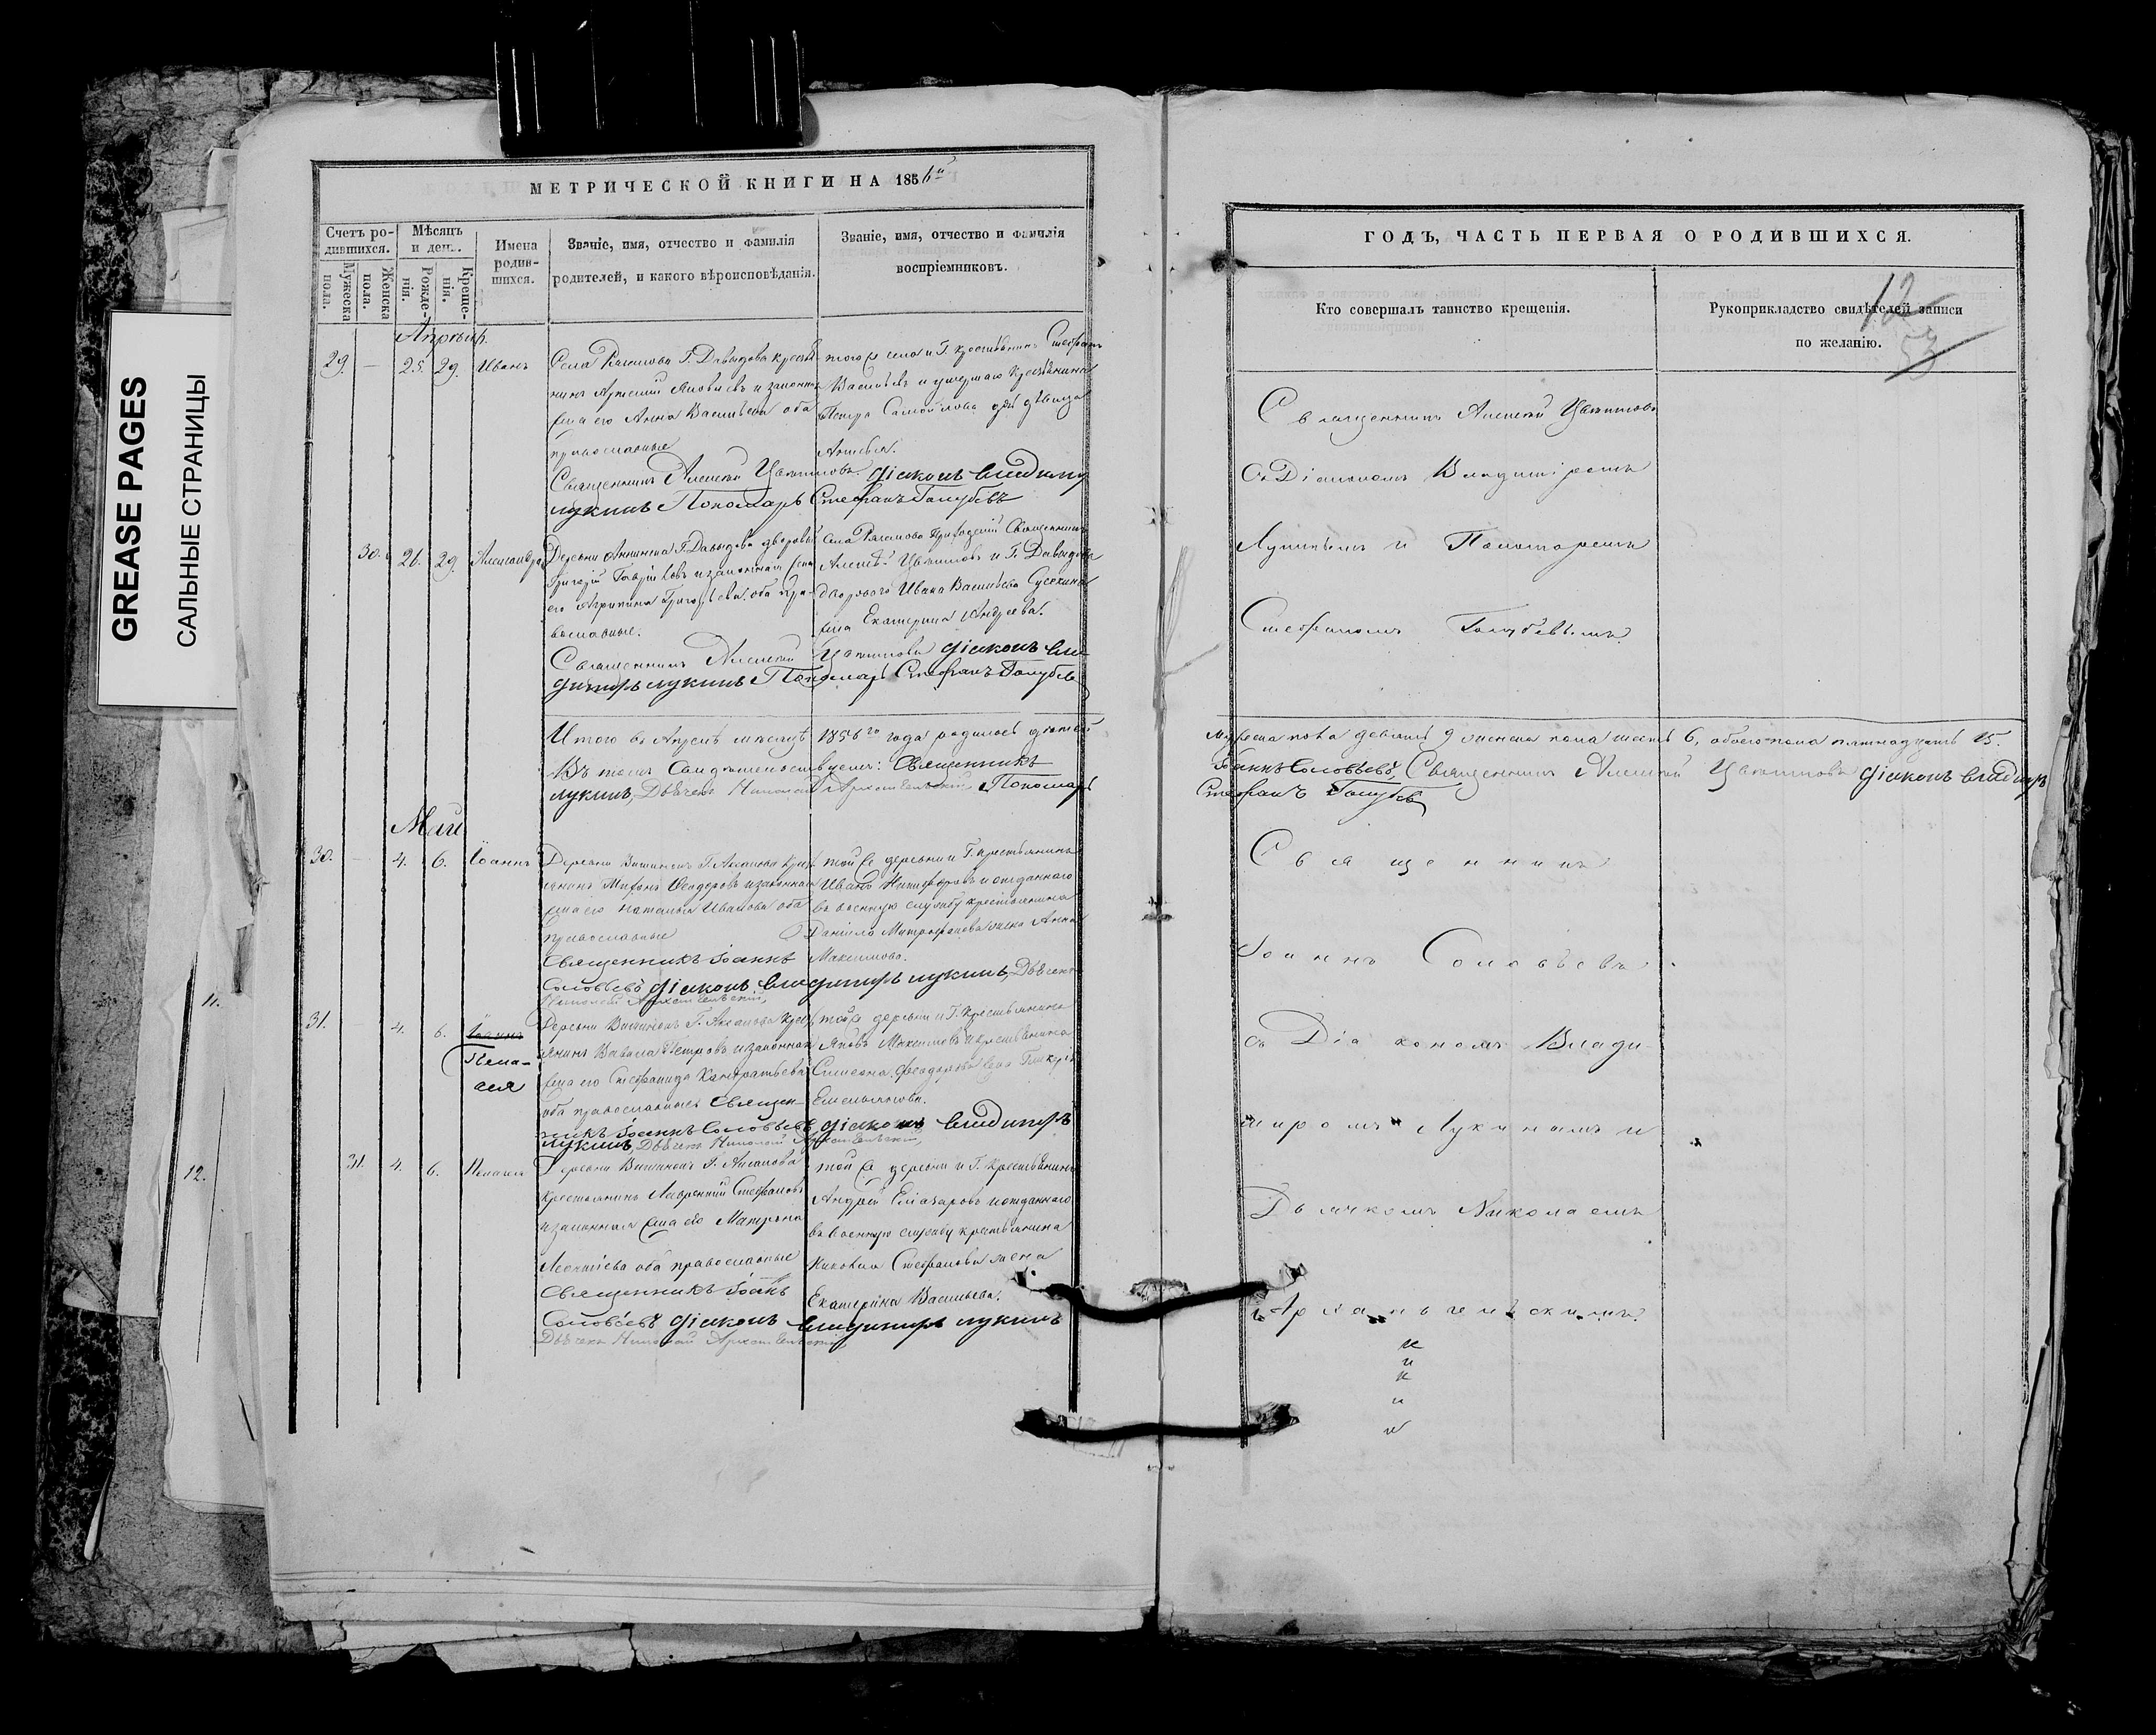 GREASE PAGES
САЛЬНЫЕ СТРАНИЦЫ
11.
12.
МЕТРИЧЕСКОЙ КНИГИ НА 1856й
Счетъ родившихся.
Мужеска пола.
Женска пола.
Мѣсяцъ и день.
Рожденія.
Крещенія.
Имена родившихся.
Званіе, имя, отчество и фамилія
родителей, и какого вѣроисповѣданія.
Званіе, имя, отчество и фамилія
воспріемниковъ.
Апрѣль
29. — 25. 29. Иванъ
Села Г. Давыдова кресть
янинъ Яковлевъ и законная
жена его Анна Васильева оба
православные
того же села и Г. крестьянинъ Стефанъ
Васильевъ и умершаго крестьянина
Петра Самойлова дѣвица
Священникъ Алексѣй Цвѣтковъ діаконъ Владимиръ
Лукинъ Пономарь Стефанъ Голубевъ
30. 26. 29. Александра
Деревни Аннина Г. Давыдова дворовый
Григорій и законная жена
его Агрипина Григорьева оба пра-
вославные.
Села Приходскій Священникъ
Алексѣй Цвѣтковъ и Г. Давыдова
двороваго Ивана Васильева
жена Екатерина Андреева.
Священникъ Алексѣй Цвѣтковъ діаконъ Вла-
димиръ Лукинъ Пономарь Стефанъ Голубевъ
Итого въ Апрелѣ мѣсяцѣ 1856го года родилось дѣтей
Въ томъ Свидѣтельствуемъ: Священникъ
Лукинъ, Дьячекъ Николай Архангельскій, Пономарь
Май
30. — 4. 6. Іоаннъ
Деревни Г. крест
янинъ Ѳеодоровъ и законная
жена его Наталья Иванова оба
православные
той же деревни и Г. крестьянинъ
Иванъ Никифоровъ и отданнаго
въ военную службу крестьянина
Даніила Митрофанова жена Анна
Максимова.
Священникъ Іоаннъ
Соловьевъ діаконъ Владимиръ Лукинъ, Дьячекъ
Николай Архангельскій,
31. 4. 6. Іоаннъ
Пела-
гея
Деревни Г. крест
янинъ Вавила Петровъ и законная
жена его Стефанида Кондратьева
оба православные Священ-
той же деревни и Г. крестьянинъ
Яковъ Максимовъ и крестьянина
Симеона Ѳеодорова жена
Емельянова.
никъ Іоаннъ Соловьевъ діаконъ Владимиръ
Лукинъ, Дьячекъ Николай Архангельскій,
31. 4. 6. Пелагея
Деревни Г.
крестьянинъ Лаврентій Стефановъ
и законная жена его Матрена
Леонтіева оба православные
той же деревни и Г. крестьянинъ
Андрей Елиазаровъ и отданнаго
въ военную службу крестьянина
Стефанова жена
Екатерина Васильева.
Священникъ Іоаннъ
Соловьевъ діаконъ Владимиръ Лукинъ
Дьячекъ Николай Архангельскій
ГОДЪ, ЧАСТЬ ПЕРВАЯ О РОДИВШИХСЯ.
Кто совершалъ таинство крещенія.
Рукоприкладство свидѣтелей записи
по желанію.
12
53
Священникъ Алексѣй Цвѣтковъ
съ Діакономъ Владиміромъ
Лукинымъ и Пономаремъ
Стефаномъ Голубевымъ
мужеска пола девять 9 женска пола шесть 6, обоего пола пятнадцать 15.
Іоаннъ Соловьевъ, Священникъ Алексѣй Цвѣтковъ діаконъ Владимиръ
Стефанъ Голубевъ
Священникъ
Іоаннъ Соловьевъ
съ Діакономъ Влади-
миромъ Лукинымъ и
Дьячкомъ Николаемъ
Архангельскимъ.